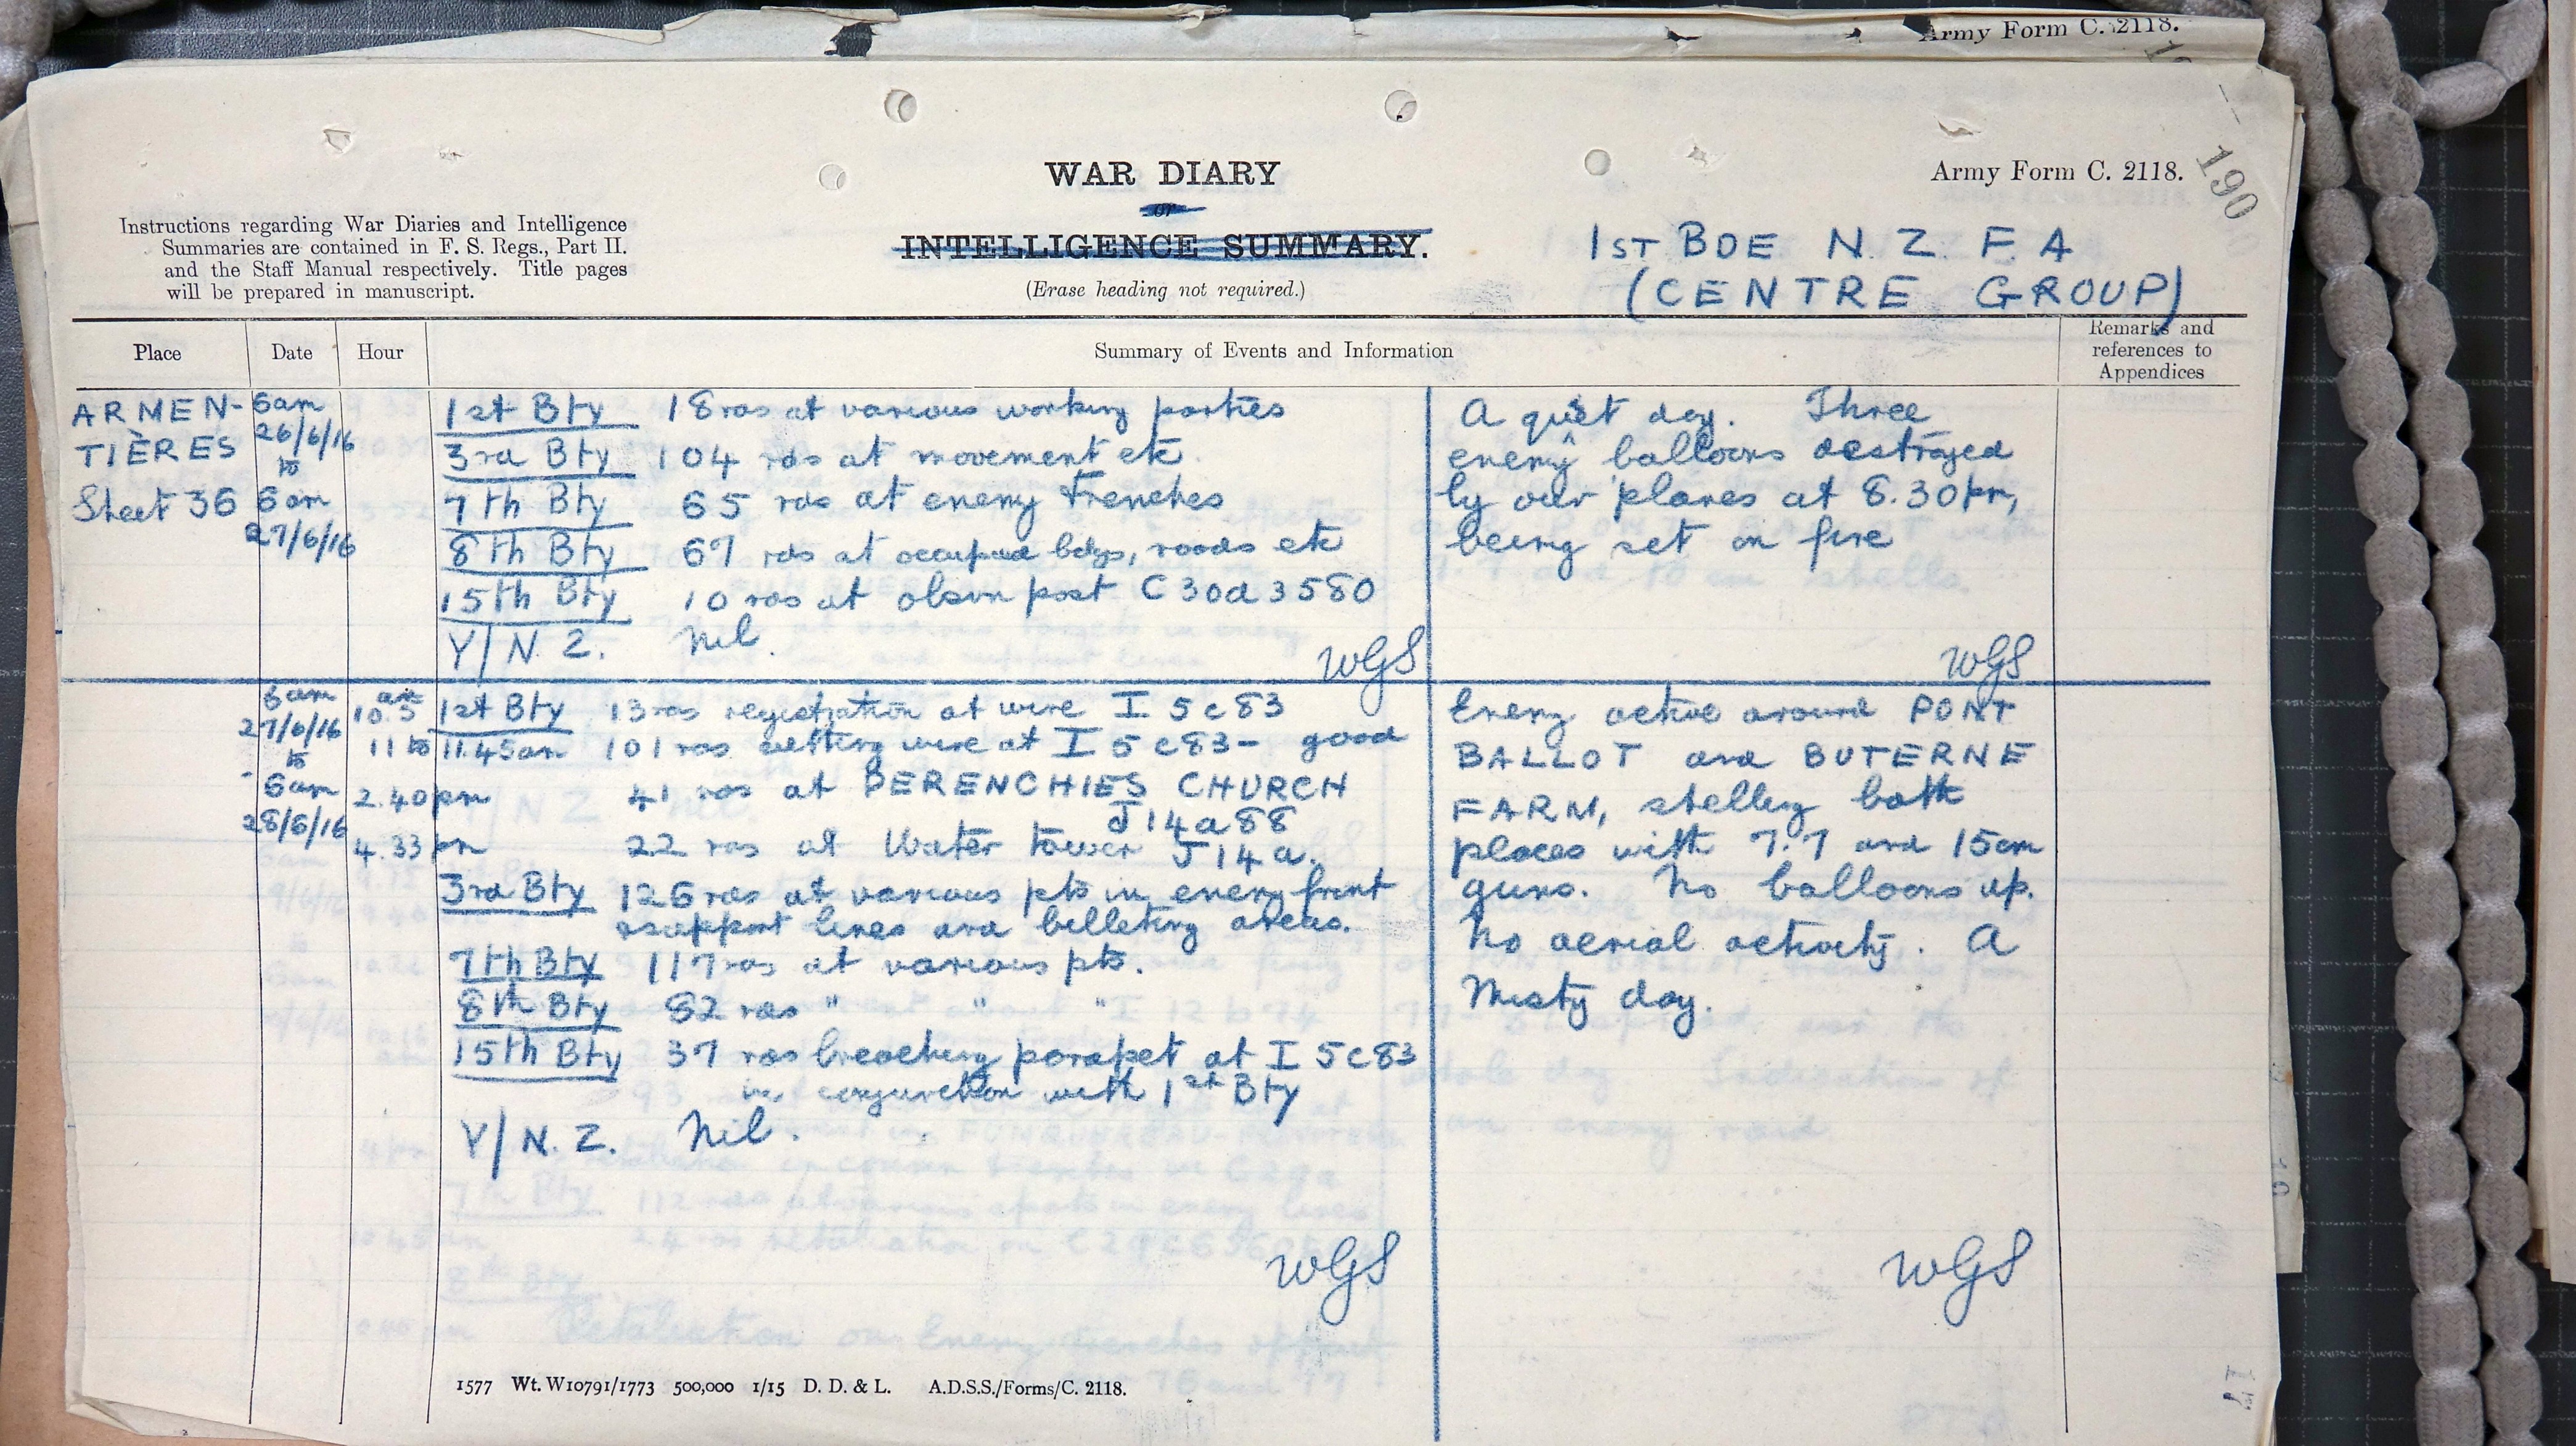 Army Form C. 2118.
WAR DIARY
or
INTELLIGENCE SUMMARY.
(Erase heading not required.)
Army Form C. 2118.
190
Instructions regarding War Diaries and Intelligence
Summaries are contained in F. S. Regs., Part II.
and the Staff Manual respectively. Title pages
will be prepared in manuscript.
1ST BDE N. Z. F. A
(CENTRE GROUP)
Place Date Hour Summary of Events and Information Remarks and references to Appendices
ARMEN-
TIÈRES
Sheet 36
6am
26/6/16
to
6am
27/6/16
1st Bty 18 rds at various working parties
3rd Bty 104 rds at movement etc
7th Bty 65 rds at enemy trenches
8th Bty 67 rds at occupied bldgs, roads etc
15th Bty 10 rds at obsvn post C30d3580
Y/N.Z. Nil.
WGS
A quiet day. Three
enemy balloons destroyed
by our planes at 8.30pm,
being set on fire
WGS
6am
27/6/16
to
6am
28/6/16
am
10.5 1st Bty 13 rds registration at wire I 5c83
11 to 11.45am 101 rds cutting wire at I 5c83 - good
2.40pm 41 rds at PERENCHIES CHURCH
J14a88
4.33pm 22 rds at Water tower J14a.
3rd Bty 126 rds at various pts in enemy front
support lines and billeting areas.
7th Bty 117 rds at various pts.
8th Bty 82 rds " " "
15th Bty 37 rds breaching parapet at I 5c83
in conjunction with 1st Bty
Y/N.Z. Nil.
WGS
Enemy active around PONT
BALLOT and BUTERNE
FARM, shelling both
places with 7.7 and 15cm
guns. No balloons up.
No aerial activity. A
Misty day.
WGS
1577 Wt. W10791/1773 500,000 1/15 D. D. & L. A.D.S.S./Forms/C. 2118.